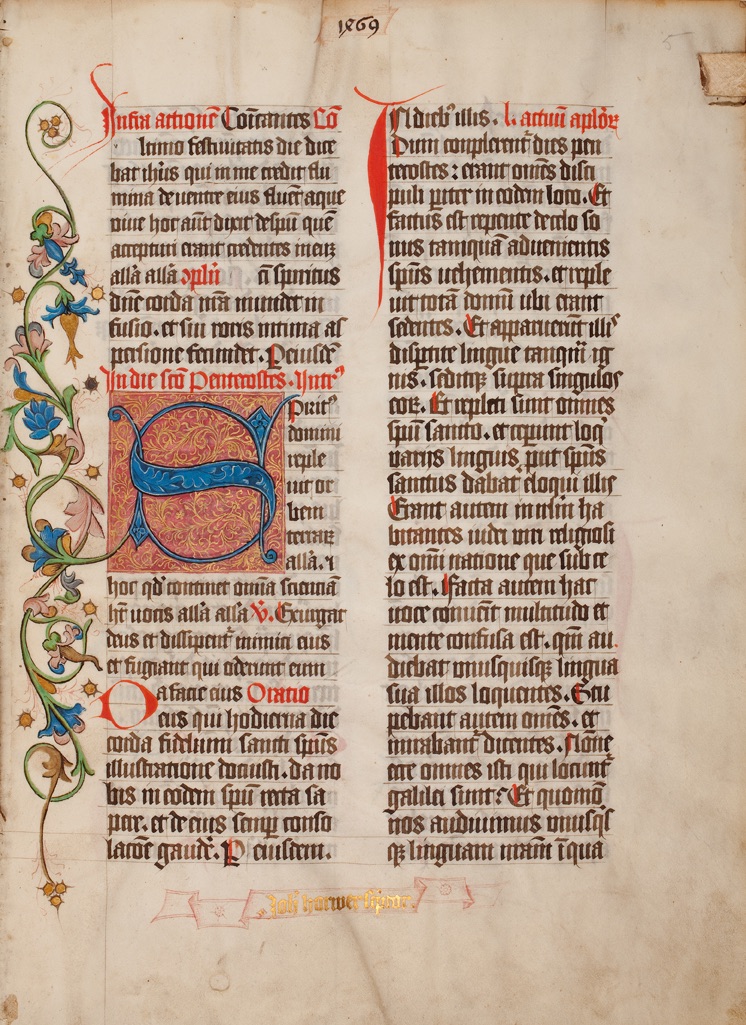 1469
Infra actionē Cōīcantes Cō
Ultimo festiuitatis die dice
bat ih̄us qui in me credit flu
mina de uentre eius fluēt aque
viue hoc aūt dixit de spū quē
accepturi erant credentes in eū
allā allā ꝯplū cī spiritus
dn̄e corda nr̄a mundet in
fusio. et sui roris intima as
persione fecundet. P eiusdē
In die scō Pentecostes. Intrꝰ
Spiritꝰ
domini
reple
uit or
bem
terraꝝ
allā. ⁊
hoc qd̓ continet omnia scienciā
h̄t uocis allā allā V̓. Exurgat
deus et dissipent᷑ inimici eius
et fugiant qui oderunt eum
a facie eius Oratio
Deus qui hodierna die
corda fidelium sancti spūs
illustratione docuisti. da no
bis in eodem spū recta sa
pere. et de eius semp̄ conso
lacōe gaudē. P eiusdem.
In dieb᷒ illis. l. actuū apl̓oꝝ
Dum conplerent᷑ dies pen
tecostes : erant om̄es disci
puli pariter in eodem loco. Et
factus est repente de celo so
nus tamquā aduenientis
spūs uehementis. et reple
uit totā domū ubi erant
sedentes. Et apparuerūt illiˢ
dispertite lingue tanquā ig
nis. seditqꝫ supra singulos
eoꝝ. Et repleti sunt omnes
spū sancto. et ceperunt loqͥ
varijs linguis, put spūs
sanctus dabat eloqui illis
Erant autem in irlm̄ ha
bitantes iudei viri religiosi
ex omī natione que sub ce
lo est. Facta autem hac
uoce conuēit multitudo et
mente confusa est. qm̄ au
diebat unusquisqꝫ lingua
sua illos loquentes. Stu
pebant autem om̄es. et
mirabant᷑ dicentes. Nōne
ecce omnes isti qui locunt᷑
galilei sunt? Et quomō
nos audiuimus unusqͥs
qꝫ linguam nr̄am ī qua
Joh̄ horwer sc̄ptor.